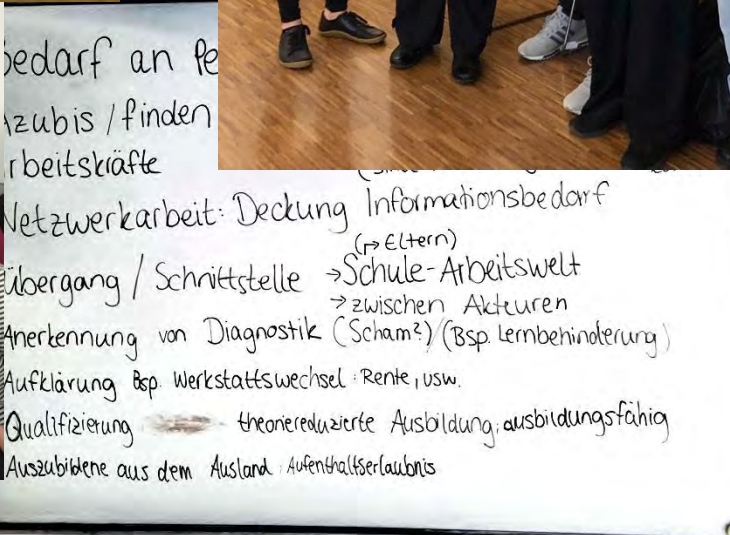 bedarf an
Azubis / finden
Arbeitskräfte
Netzwerkarbeit: Deckung Informationsbedarf
(↱ Eltern)
Übergang / Schnittstelle → Schule-Arbeitswelt
→ zwischen Akteuren
Anerkennung von Diagnostik (Scham?)/(Bsp. Lernbehinderung)
Aufklärung Bsp. Werkstattswechsel: Rente, usw.
Qualifizierung theoriereduzierte Ausbildung; ausbildungsfähig
Auszubildene aus dem Ausland: Aufenthaltserlaubnis